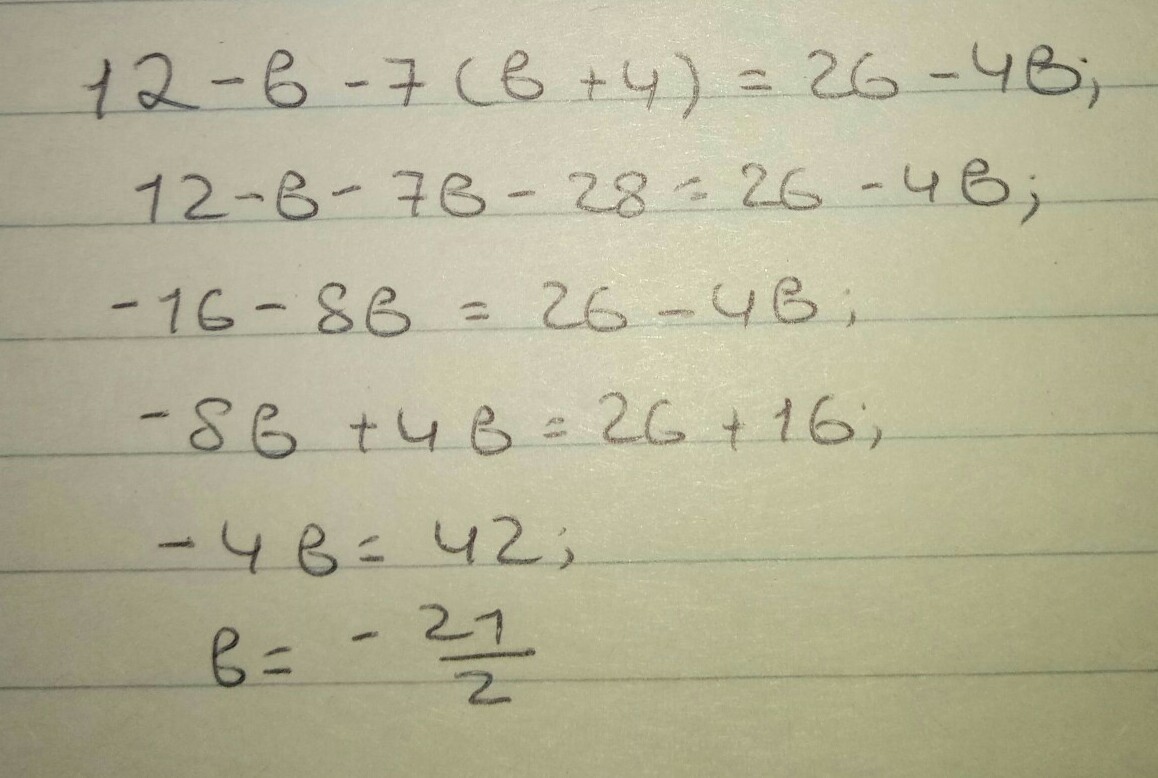 12 - в - 7 (в + 4) = 26 - 4в;
12 - в - 7в - 28 = 26 - 4в;
-16 - 8в = 26 - 4в;
-8в + 4в = 26 + 16;
-4в = 42;
в = - 21/2